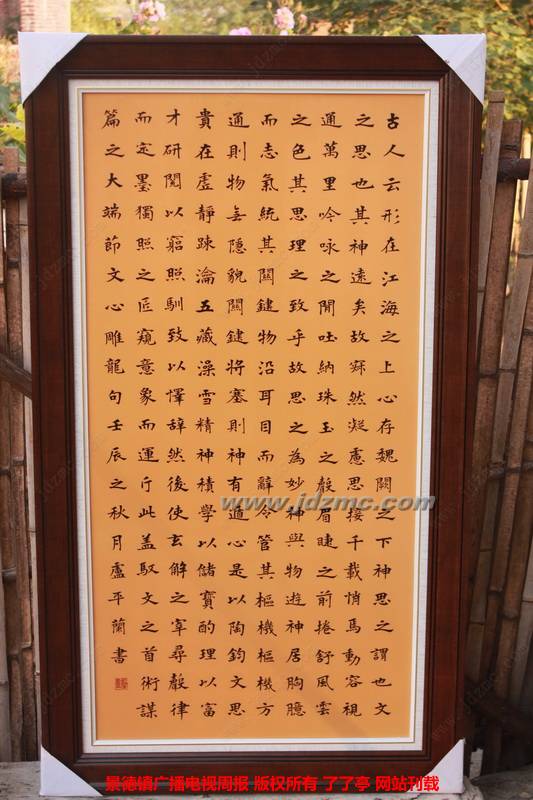 古人云形在江海之上心存魏闕之下神思之謂也文
之思也其神遠矣故寂然凝慮思接千載悄馬動容視
通萬里吟咏之間吐納珠玉之聲眉睫之前捲舒風雲
之色其思理之致乎故思之為妙神與物遊神居胸臆
而志氣統其關鍵物沿耳目而辭令管其樞機樞機方
通則物無隱貌關鍵將塞則神有遁心是以陶鈞文思
貴在虛靜疎瀹五藏澡雪精神積學以儲寶酌理以富
才研閱以窮照馴致以懌辭然後使玄解之宰尋聲律
而定墨獨照之匠窺意象而運斤此蓋馭文之首術謀
篇之大端節文心雕龍句壬辰之秋月盧平蘭書
www.jdzmc.com
景德镇广播电视周报 版权所有 了了亭 网站刊载